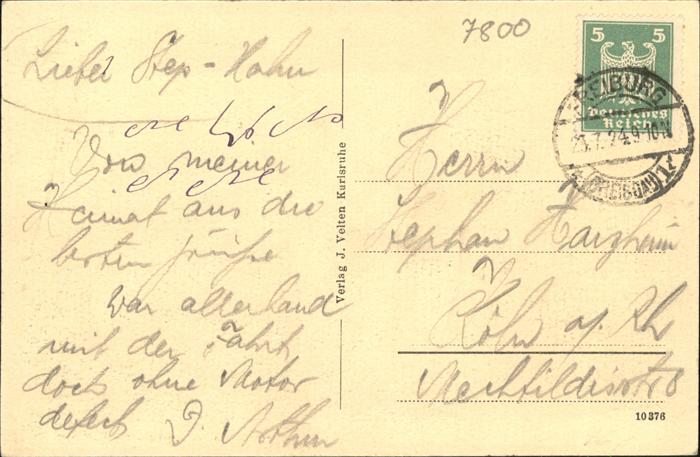 7800
5 5
Deutsches
Reich
FREIBURG
24.9-10
(BREISGAU)
Lieber Step-Hahn
Von meiner
Heimat aus die
besten Grüße
War allerhand
mit der Fahrt
doch ohne Motor
defect D. Arthur
Verlag J. Velten Karlsruhe
Herrn
Stephan Harzheim
Köln a/Rh
Mechtildisstr 8
10376